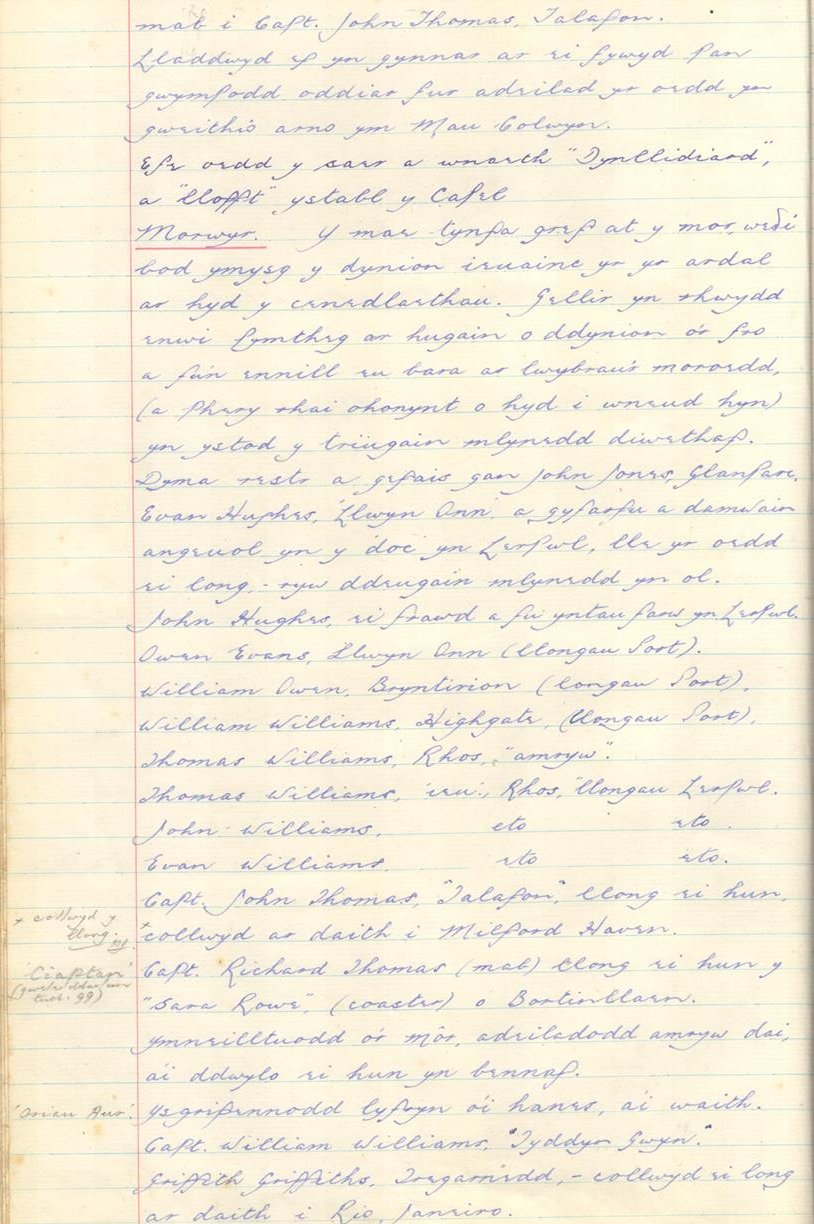 mab i Capt. John Thomas, Talafon.
Lladdwyd ef yn gynnar ar ei fywyd pan
gwympodd oddiar fur adeilad yr oedd yn
gweithio arno ym Mau Colwyn.
Efe oedd y saer a wnaeth "Dynllidiard",
a "llofft" ystabl y Capel
Morwyr. Y mae tynfa gref at y mor, wedi
bod ymysg y dynion ieuainc yr yr ardal
ar hyd y cenedlaethau. Gellir yn rhwydd
enwi pymtheg ar hugain o ddynion o'r fro
a fu'n ennill eu bara ar lwybrau'r moroedd,
(a phery rhai ohonynt o hyd i wneud hyn)
yn ystod y triugain mlynedd diwethaf.
Dyma restr a gefais gan John Jones, Glanparc.
Evan Hughes, Llwyn Onn, a gyfarfu a damwain
angeuol yn y doc yn Lerpwl, lle yr oedd
ei long, - ryw ddeugain mlynedd yn ol.
John Hughes, ei frawd a fu yntau farw yn Lerpwl.
Owen Evans, Llwyn Onn (llongau Port).
William Owen, Bryntirion (longau Port),
William Williams, Highgate, (llongau Port),
Thomas Williams, Rhos, "amryw".
Thomas Williams, ieu., Rhos, llongau Lerpwl.
John Williams, eto eto.
Evan Williams, eto eto.
Capt. John Thomas, "Talafon", llong ei hun,
x collwyd y
llong.
x collwyd ar daith i Milford Haven.
'Ciaptan'
Capt. Richard Thomas (mab) llong ei hun y
"Sara Rowe", (coaster) o Bortinllaen.
ymneilltuodd o'r môr, adeiladodd amryw dai,
a'i ddwylo ei hun yn bennaf.
'Oriau Aur'. Ysgrifennodd lyfryn o'i hanes, a'i waith.
Capt. William Williams, "Tyddyn Gwyn."
Griffith Griffiths, Tregarnedd, - collwyd ei long
ar daith i Rio, Janeiro.